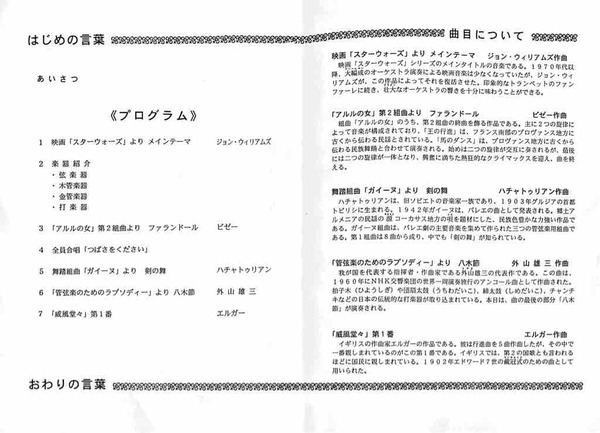 はじめの言葉
あいさつ
《プログラム》
1 映画「スターウォーズ」より メインテーマ ジョン・ウィリアムズ
2 楽器紹介
・弦楽器
・木管楽器
・金管楽器
・打楽器
3 「アルルの女」第2組曲より ファランドール ビゼー
4 全員合唱「つばさをください」
5 舞踏組曲「ガイーヌ」より 剣の舞 ハチャトゥリアン
6 「管弦楽のためのラプソディー」より 八木節 外山雄三
7 「威風堂々」第1番 エルガー
おわりの言葉
曲目について
映画「スターウォーズ」より メインテーマ ジョン・ウィリアムズ作曲
映画「スターウォーズ」シリーズのメインタイトルの音楽である。1970年代以
降、大編成のオーケストラ演奏による映画音楽は少なくなっていたが、ジョン・ウィ
リアムズが、この作品によってそれを復活させた。印象的なトランペットのファン
ファーレに続き、壮大なオーケストラの響きを十分に味わうことができる。
「アルルの女」第2組曲より ファランドール ビゼー作曲
組曲「アルルの女」のうち、第2組曲の終曲を飾る作品である。主に2つの旋律に
よって音楽が構成されており、「王の行進」は、フランス南部のプロヴァンス地方に
古くから伝わる民謡とされている。「馬のダンス」は、プロヴァンス地方に古くから
伝わる民族舞踊と合わせて演奏される。始めは二つの旋律が交互に奏されるが、最後
には二つの旋律が一体となり、興奮に満ちた熱狂的なクライマックスを迎え、曲を終
える。
舞踏組曲「ガイーヌ」より 剣の舞 ハチャトゥリアン作曲
ハチャトゥリアンは、旧ソビエトの音楽家一族であり、1903年グルジアの首都
トビリシに生まれる。1942年ガイーヌは、バレエの曲として発表される。郷土ア
ルメニアの民謡の源コーカサス地方の唄を題材にした、民族色豊かな力強い作品で
ある。ガイーヌ組曲は、バレエ劇の主要音楽を集めて作られた三つの管弦楽用組曲で
ある。第1組曲は8曲から成り、中でも「剣の舞」が知られている。
「管弦楽のためのラプソディー」より 八木節 外山雄三作曲
我が国を代表する指揮者・作曲家である外山雄三の代表作である。この曲は、
1960年にNHK交響楽団の世界一周演奏旅行のアンコール曲として作曲された。
拍子木（ひょうしぎ）や団扇太鼓（うちわだいこ）、締太鼓（しめだいこ）、チャンチ
キなどの日本の伝統的な打楽器が取り込まれている。本日は、曲の最後の部分「八木
節」が演奏される。
「威風堂々」第1番 エルガー作曲
イギリスの作曲家エルガーの作品である。彼は行進曲を5曲作曲したが、その中で
一番親しまれているのがこの第1番である。イギリスでは、第2の国歌とも言われる
ほどに国民に親しまれている。1902年エドワード7世の戴冠式のための曲として
用いられた。